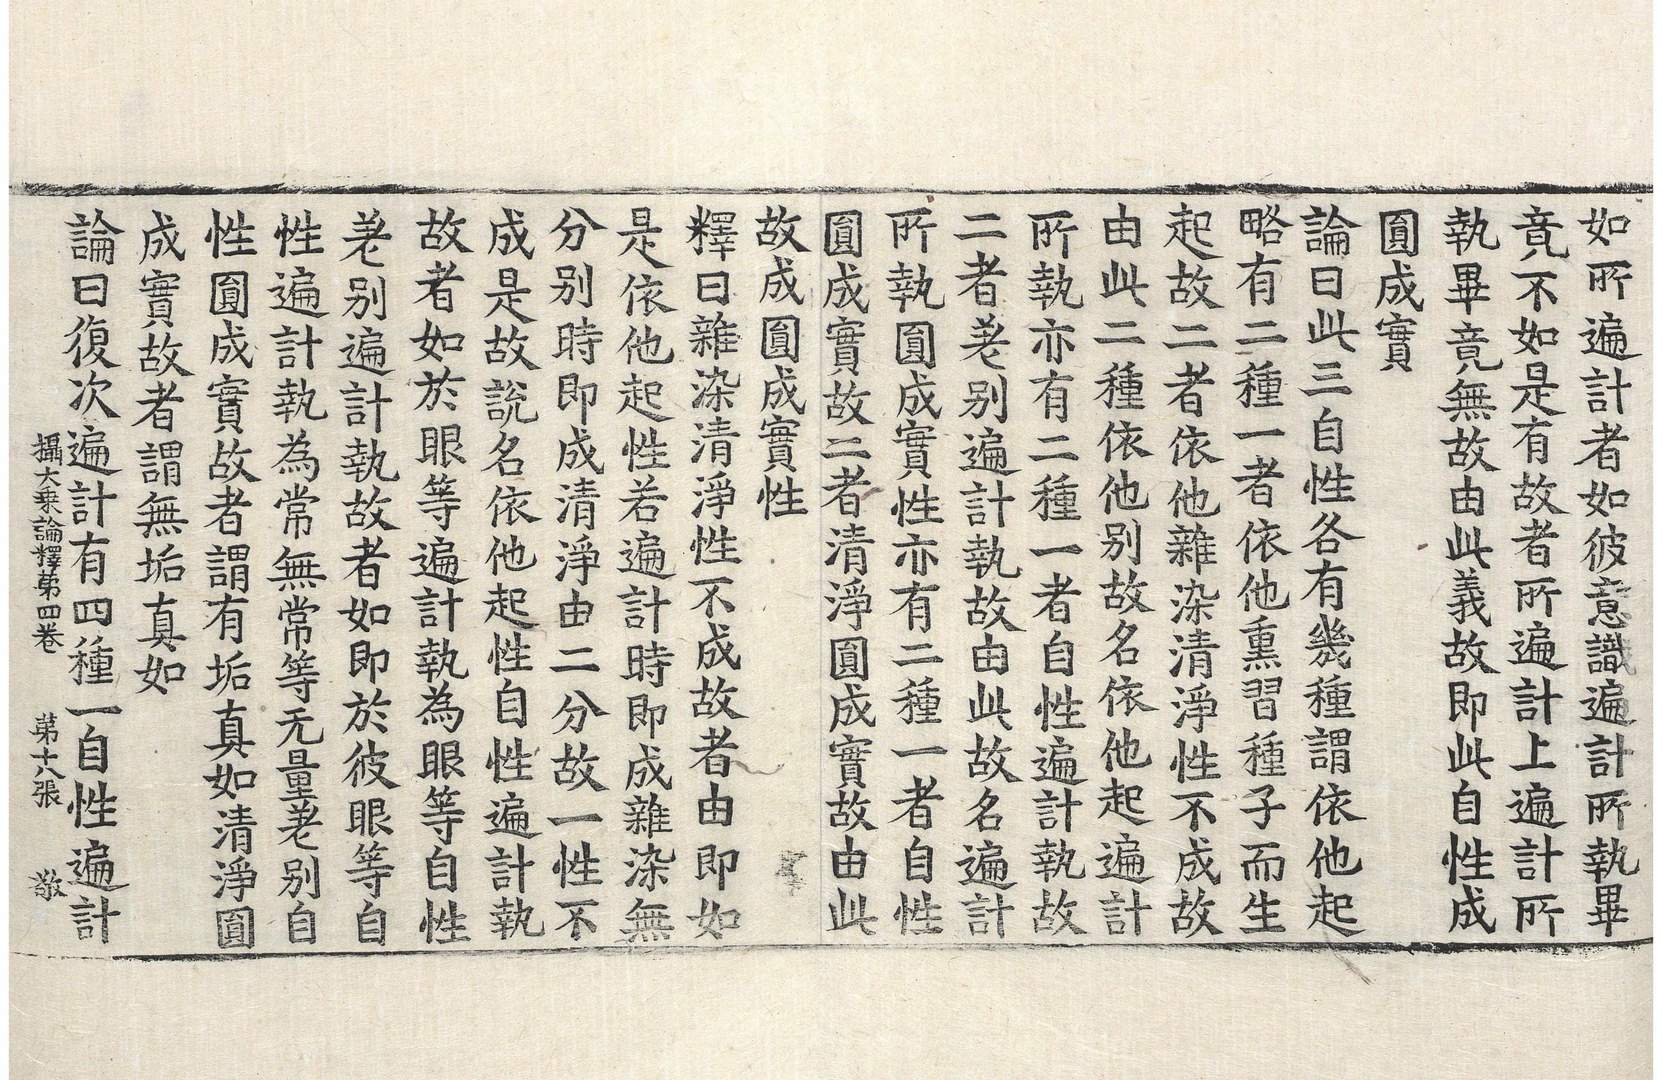 如所遍計者如彼意識遍計所執畢
竟不如是有故者所遍計上遍計所
執畢竟無故由此義故即此自性成
圓成實
論曰此三自性各有幾種謂依他起
略有二種一者依他熏習種子而生
起故二者依他雜染清淨性不成故
由此二種依他別故名依他起遍計
所執亦有二種一者自性遍計執故
二者差別遍計執故由此故名遍計
所執圓成實性亦有二種一者自性
圓成實故二者清淨圓成實故由此
故成圓成實性
釋曰雜染清淨性不成故者由即如
是依他起性若遍計時即成雜染無
分別時即成清淨由二分故一性不
成是故說名依他起性自性遍計執
故者如於眼等遍計執為眼等自性
差別遍計執故者如即於彼眼等自
性遍計執為常無常等无量差別自
性圓成實故者謂有垢真如清淨圓
成實故者謂無垢真如
論曰復次遍計有四種一自性遍計
攝大乗論釋第四卷 第十八張 敬